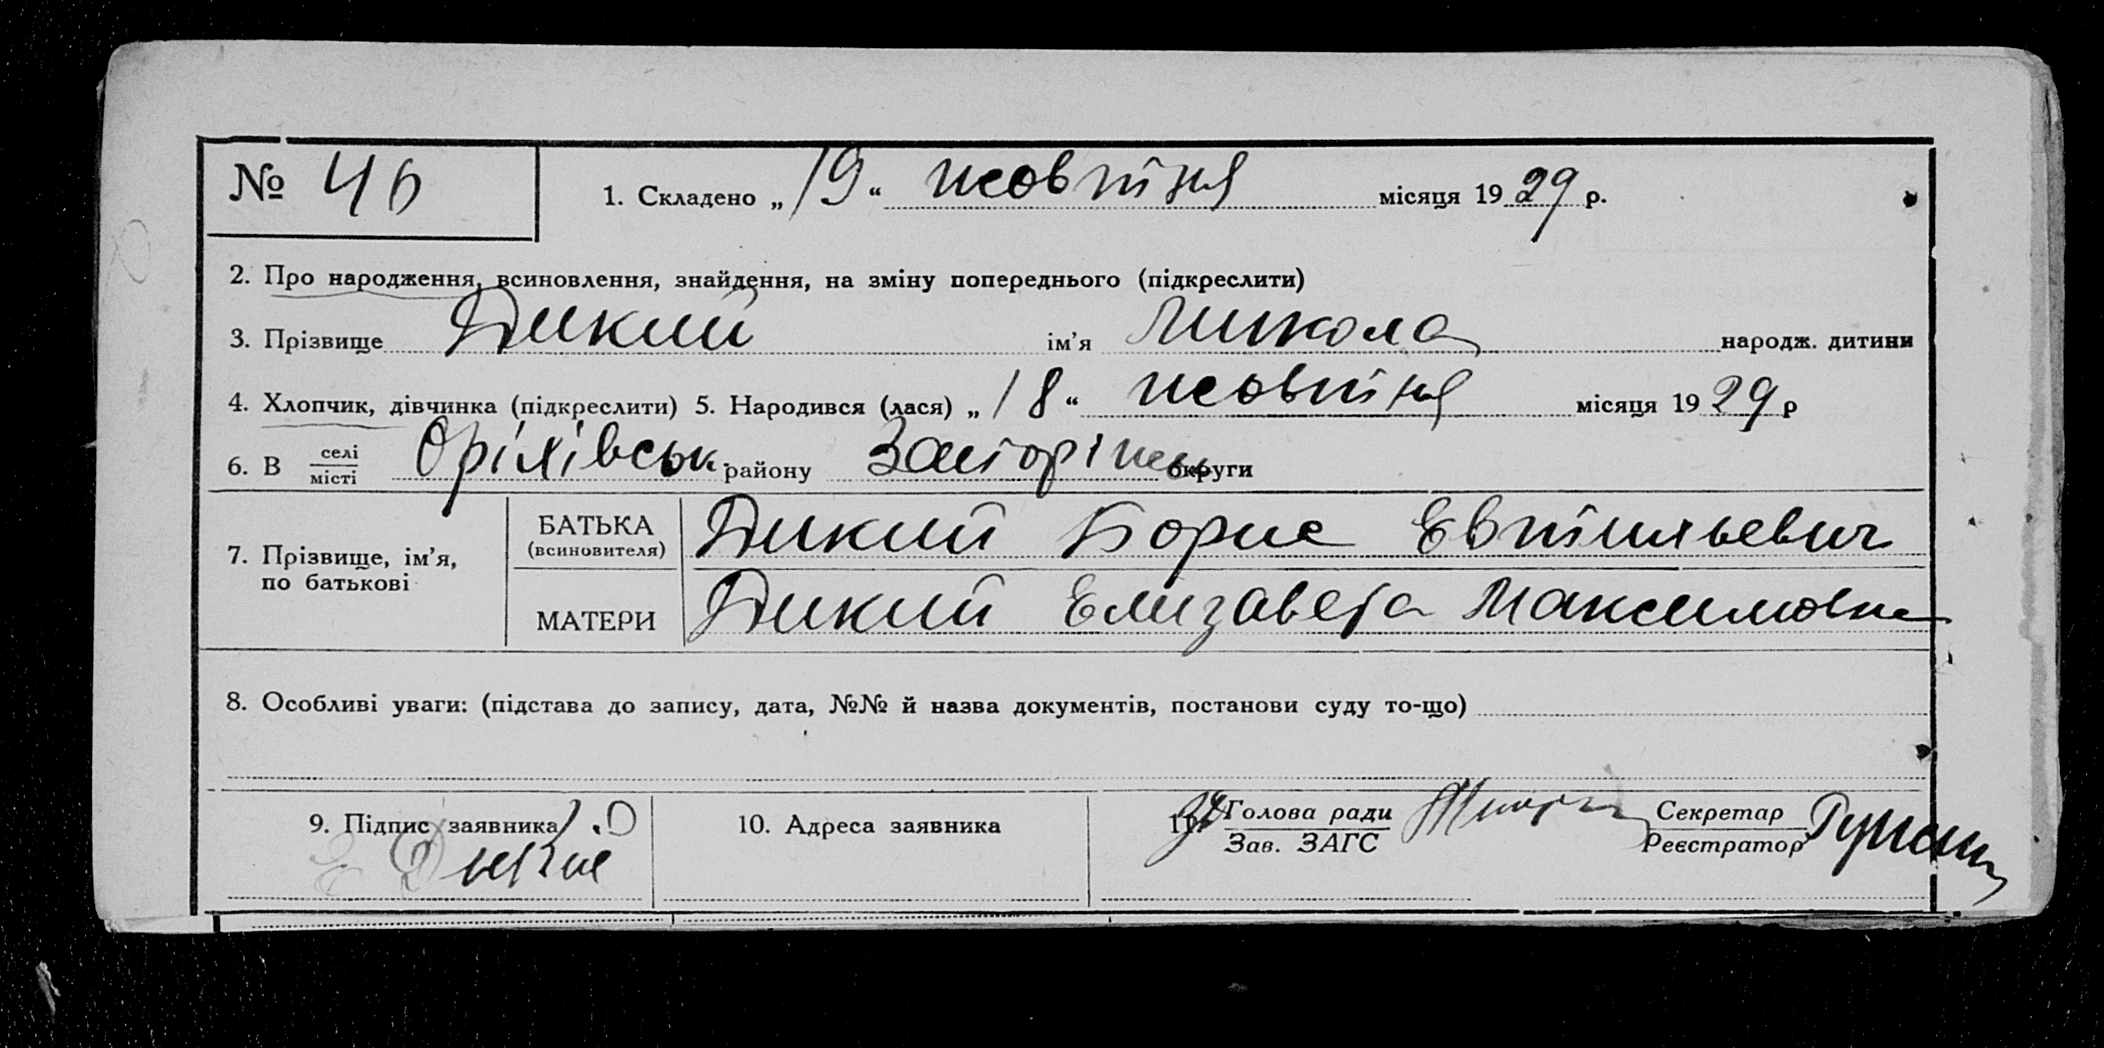 № 46
1. Складено „19“ жовтня місяця 1929 р.
2. Про народження, всиновлення, знайдення, на зміну попереднього (підкреслити)
3. Прізвище Дикий ім’я Микола народж. дитини
4. Хлопчик, дівчинка (підкреслити) 5. Народився (лася) „18“ жовтня місяця 1929 р
6. В селі Оріхівськ району округи
місті
7. Прізвище, ім’я,
по батькові
БАТЬКА
(всиновителя)
Дикий Борис
МАТЕРИ Дикий Елизавета Максимовна
8. Особливі уваги: (підстава до запису, дата, №№ й назва документів, постанови суду то-що)
9. Підпис заявника
10. Адреса заявника
Голова ради
Зав. ЗАГС
Секретар
Реєстратор